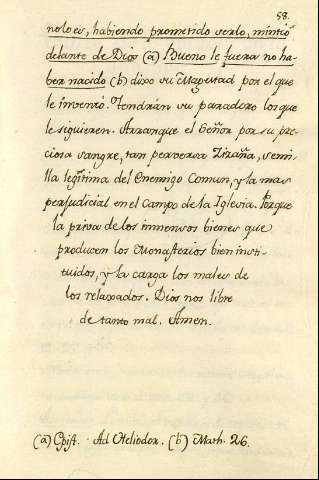 58.
no lo es, habiendo prometido serlo, mintió
delante de Dios (a) Bueno le fuera no ha-
ber nacido (b) dixo su Magestad por el que
le inventó. Tendrán su paradero los que
le siguieren. Arranque el Señor por su pre-
ciosa sangre, tan perversa Zizaña, semi-
lla legítima del Enemigo Comun, y la mas
perjudicial en el Campo de la Iglesia. Porque
la priva de los inmensos bienes que
producen los Monasterios bien insti-
tuidos, y la carga los males de
los relaxados. Dios nos libre
de tanto mal. Amen.
(a) Epist. Ad Heliodor. (b) Math. 26.